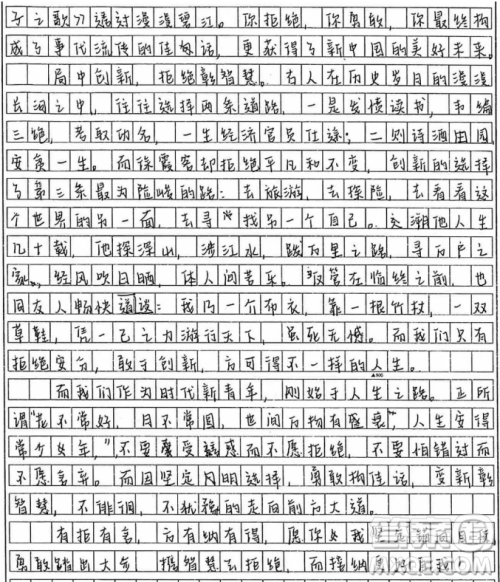 子之歌》遍对漫漫碧江。你拒绝,你勇敢,你最终构
成了事代流传的佳句话,更获得了新中国的美好未来。
局中创新,拒绝彰智慧。古人在历史岁月的漫漫
长河之中,往往选择两条道路,一是发愤读书,韦编
三绝,考取功名,一生经济官员仕途;二则诗酒田园,
安贫一生。而徐霞客却拒绝平凡和不变,创新的选择
了第三条最为险峻的路:去旅游,去探险,去看看这
个世界的另一面,去寻找另一个自己。溯他人生
几十载,他探深山,涉江水,踏万里之路,寻万户之
家,经风吹日晒,体人间苦乐。尽管在临终之前,也
同友人畅快道谈:我乃一个布衣,靠一根竹杖,一双
草鞋,凭一己之力游行天下,虽死无憾。而我们只有
拒绝安分,敢于创新,方可得不一样的人生。
而我们作为时代新青年,刚始于人生之路。正所
谓"花不常好,月不常圆,世间万物有盛衰",人生安得
常个少年,"不要屡受诱惑而不愿拒绝,不要怕错过而
不愿舍弃。而因坚定内明选择,勇敢构佳话,变新彰
智慧,不徘徊,不犹豫的走向前方大道。
有拒有舍,方有纳有得,愿你与我坚定朝向目标
勇敢踏出大气,携智慧去拒绝,而接纳更好自我